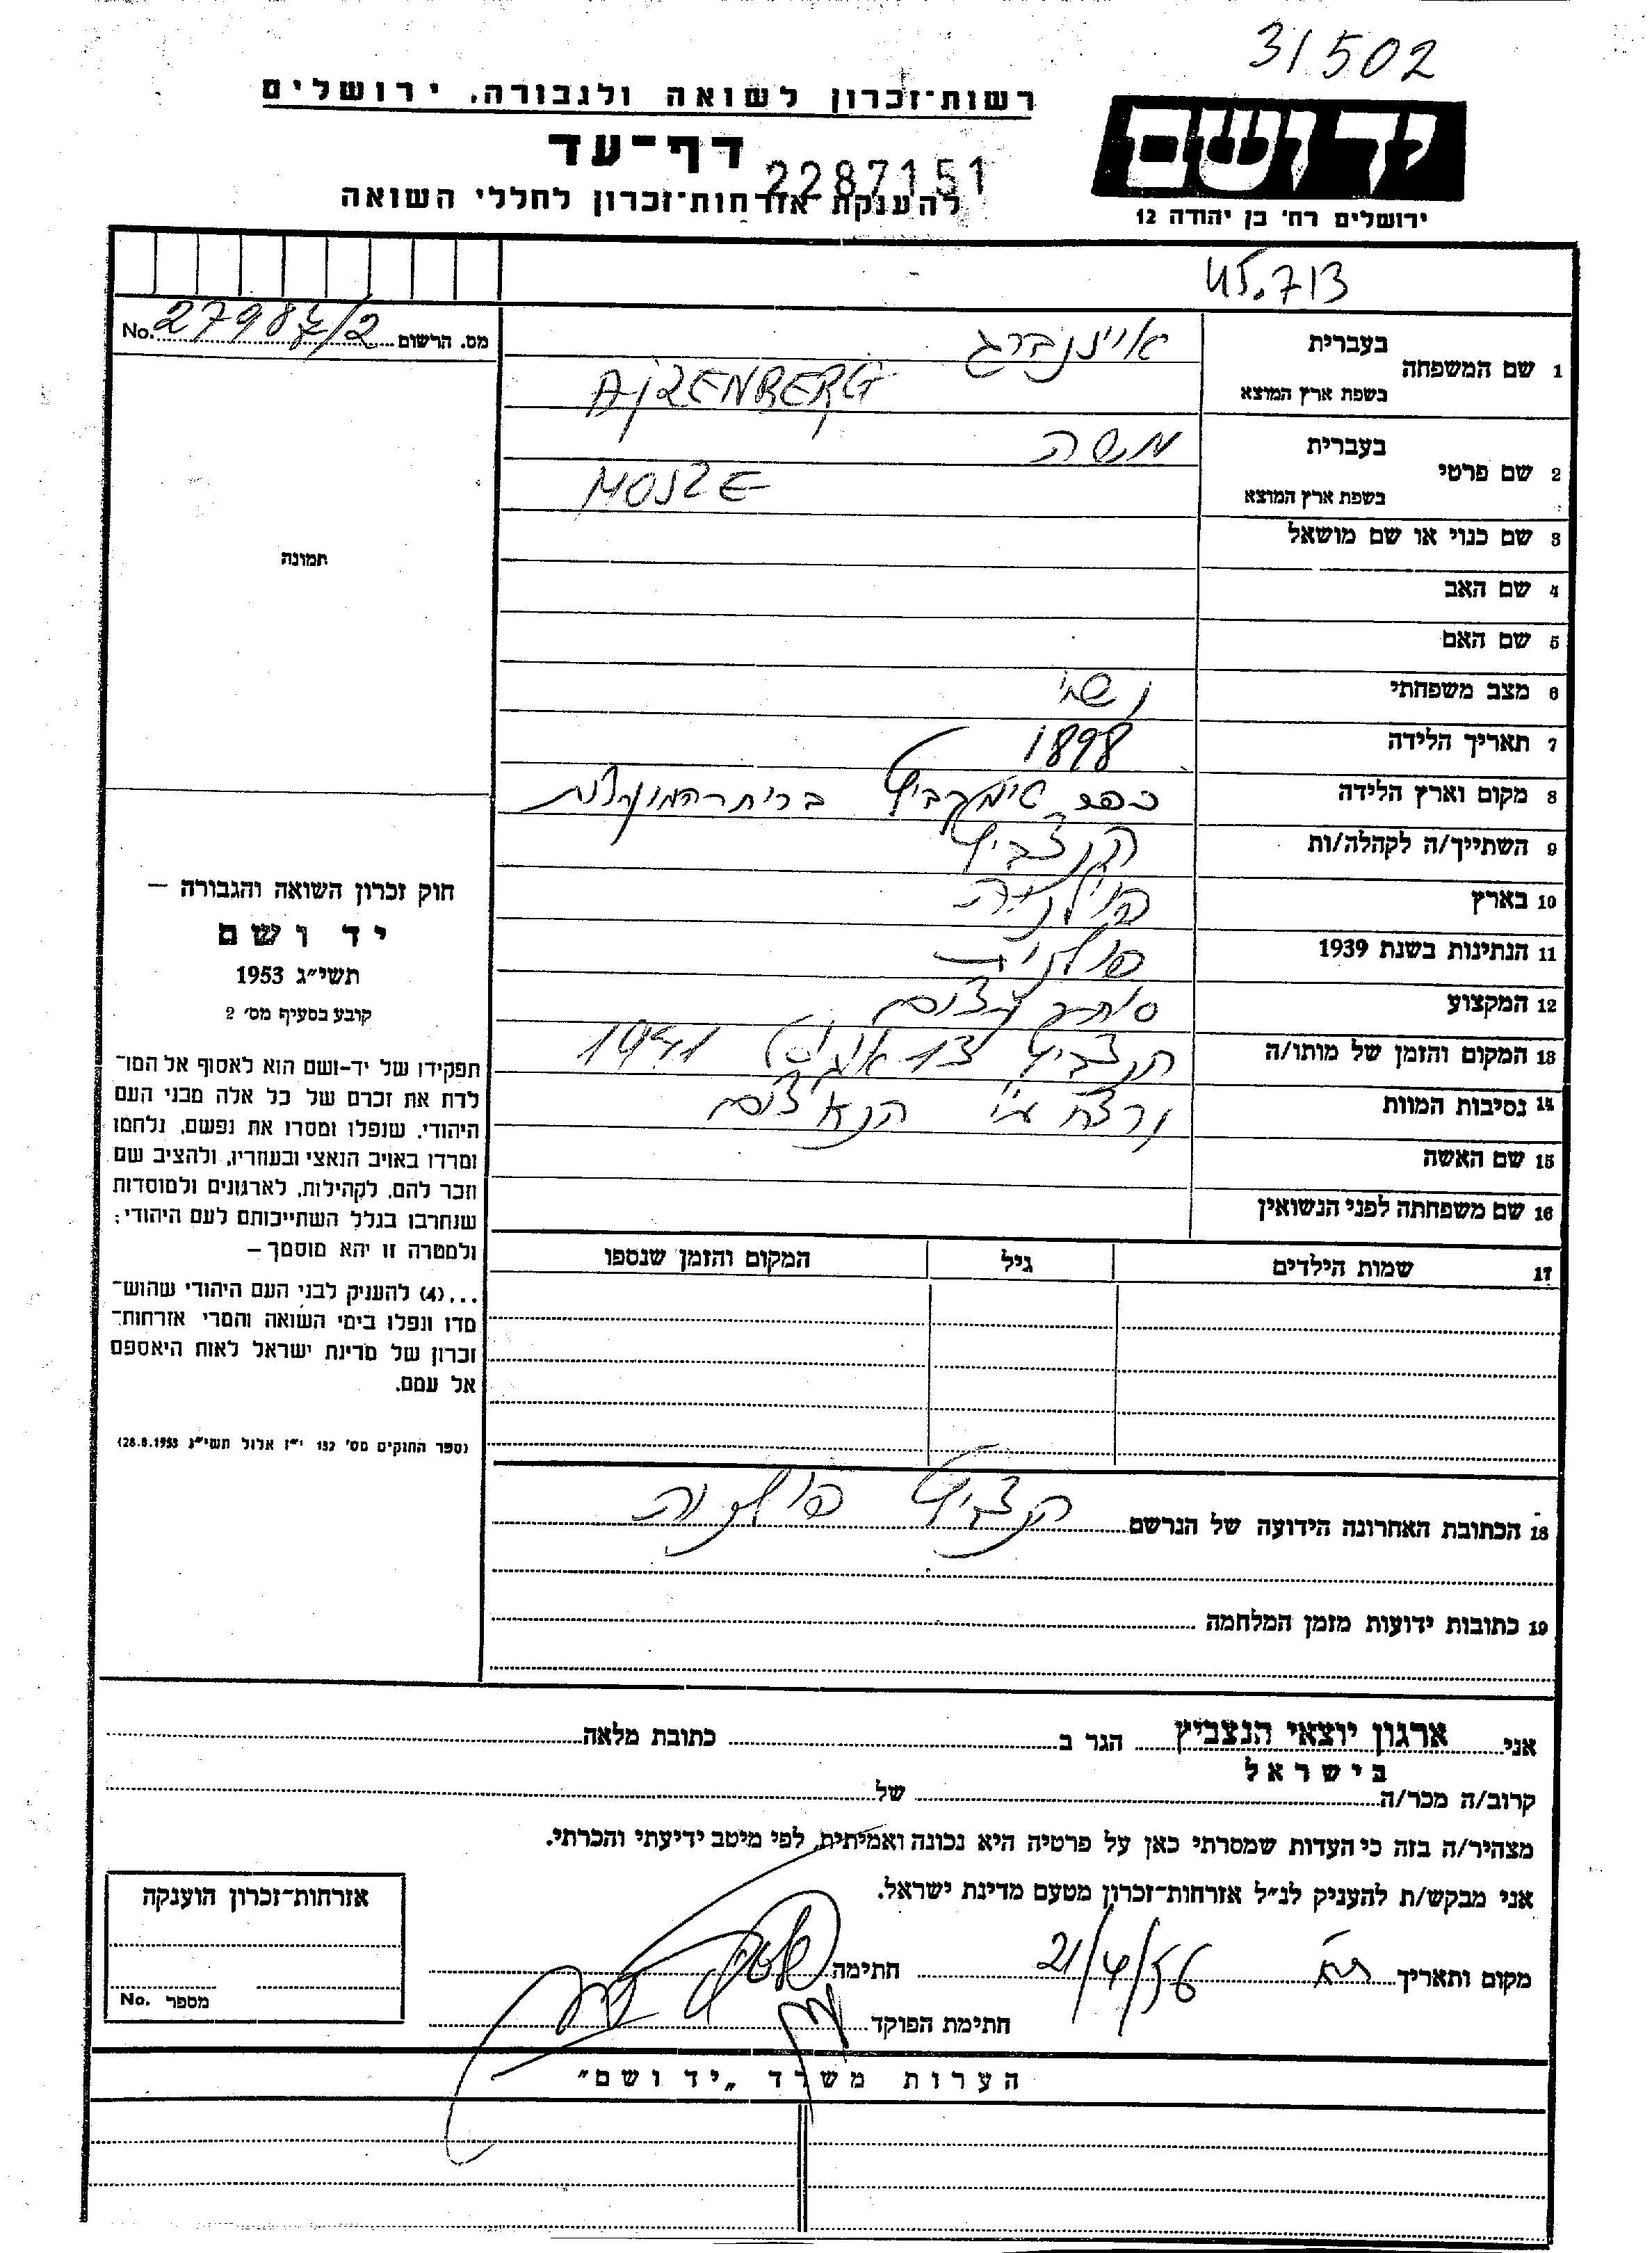 31502
רשות־זכרון לשואה ולגבורה, ירושלים
יד ושם
דף־עד
2287151
להענקת אזרחות־זכרון לחללי השואה
ירושלים רח' בן יהודה 12
45.713
מס. הרשום No. 2798
1 שם המשפחה בעברית
בשפת ארץ המוצא AJZENBERG
2 שם פרטי בעברית משה
בשפת ארץ המוצא MOSZE
3 שם כנוי או שם מושאל
4 שם האב
5 שם האם
6 מצב משפחתי נשוי
7 תאריך הלידה 1898
8 מקום וארץ הלידה כפר ברית המועצות
9 השתייך/ה לקהלה/ות הנצביץ
10 בארץ פולניה
11 הנתינות בשנת 1939 פולנית
12 המקצוע סוחר עצים
13 המקום והזמן של מותו/ה הנצביץ אוגוסט 1941
14 נסיבות המוות נרצח ע"י הנאצים
15 שם האשה
16 שם משפחתה לפני הנשואין
17 שמות הילדים גיל המקום והזמן שנספו
תמונה
חוק זכרון השואה והגבורה —
יד ושם
תשי״ג 1953
קובע בסעיף מס' 2
תפקידו של יד-ושם הוא לאסוף אל המו־
לדת את זכרם של כל אלה מבני העם
היהודי, שנפלו ומסרו את נפשם, נלחמו
ומרדו באויב הנאצי ובעוזריו, ולהציב שם
וזכר להם, לקהילות, לארגונים ולמוסדות
שנחרבו בגלל השתייכותם לעם היהודי;
ולמטרה זו יהא מוסמך —
...(4) להעניק לבני העם היהודי שהוש־
מדו ונפלו בימי השואה והמרי אזרחות־
זכרון של מדינת ישראל לאות היאספם
אל עמם.
(ספר החוקים מס' 132 י״ז אלול תשי״ג 28.8.1953)
18 הכתובת האחרונה הידועה של הנרשם הנצביץ פולניה
19 כתובות ידועות מזמן המלחמה
אני ארגון יוצאי הנצביץ הגר ב כתובת מלאה
בישראל
קרוב/ה מכר/ה של
מצהיר/ה בזה כי העדות שמסרתי כאן על פרטיה היא נכונה ואמיתית, לפי מיטב ידיעתי והכרתי.
אני מבקש/ת להעניק לנ״ל אזרחות־זכרון מטעם מדינת ישראל.
מקום ותאריך ת"א 21/4/56 חתימה
חתימת הפוקד
אזרחות־זכרון הוענקה
מספר No.
הערות משרד „יד ושם"